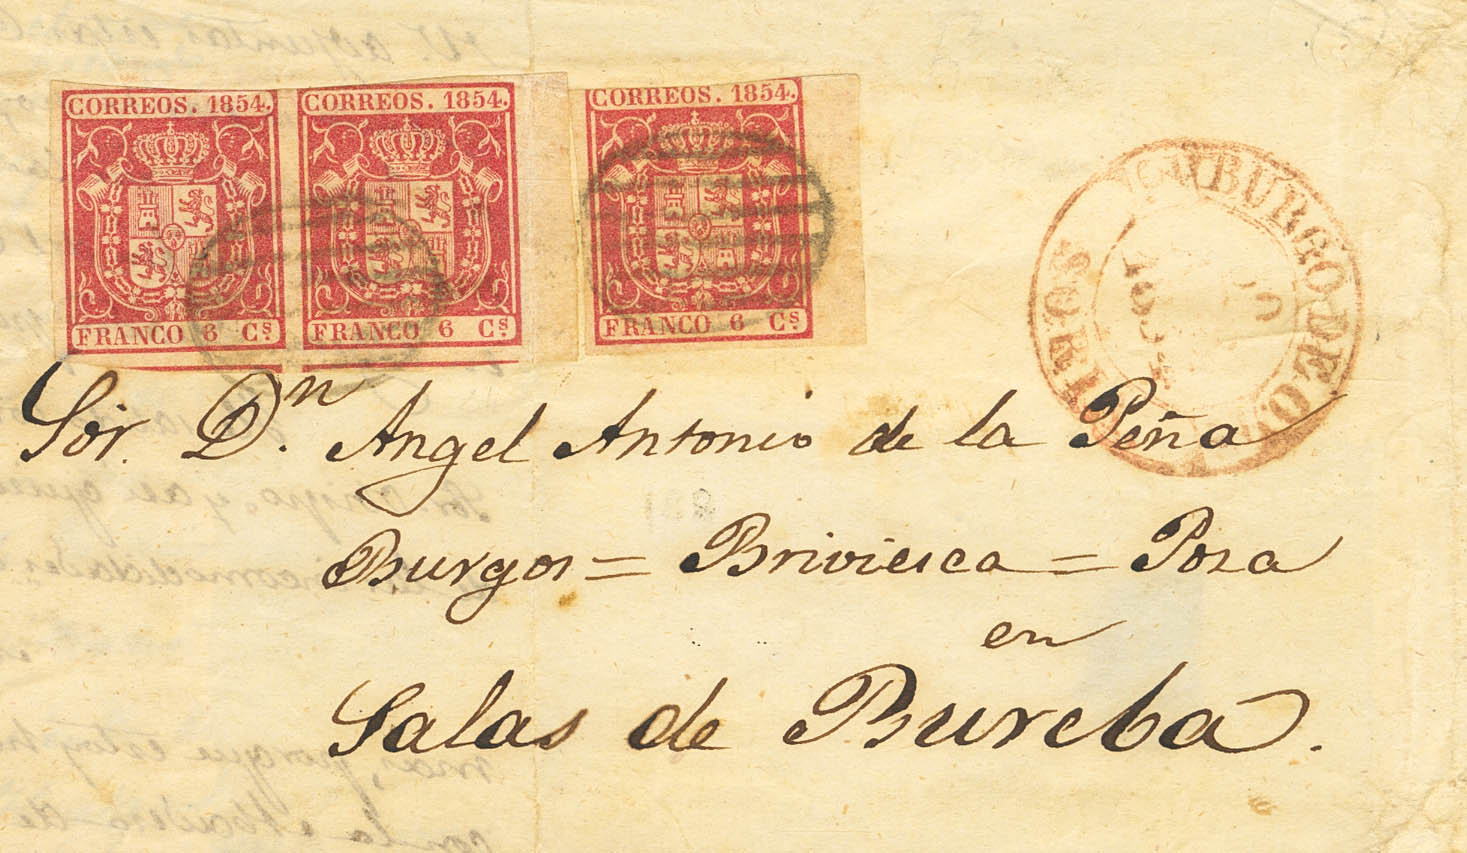 CORREOS. 1854. CORREOS. 1854. CORREOS. 1854.
FRANCO 6 Cs. FRANCO 6 Cs. FRANCO 6 Cs.
BURGO DE O
Sór. Dn. Angel Antonio de la Peña
Burgos = Briviesca = Poza
en
Salas de Bureba.